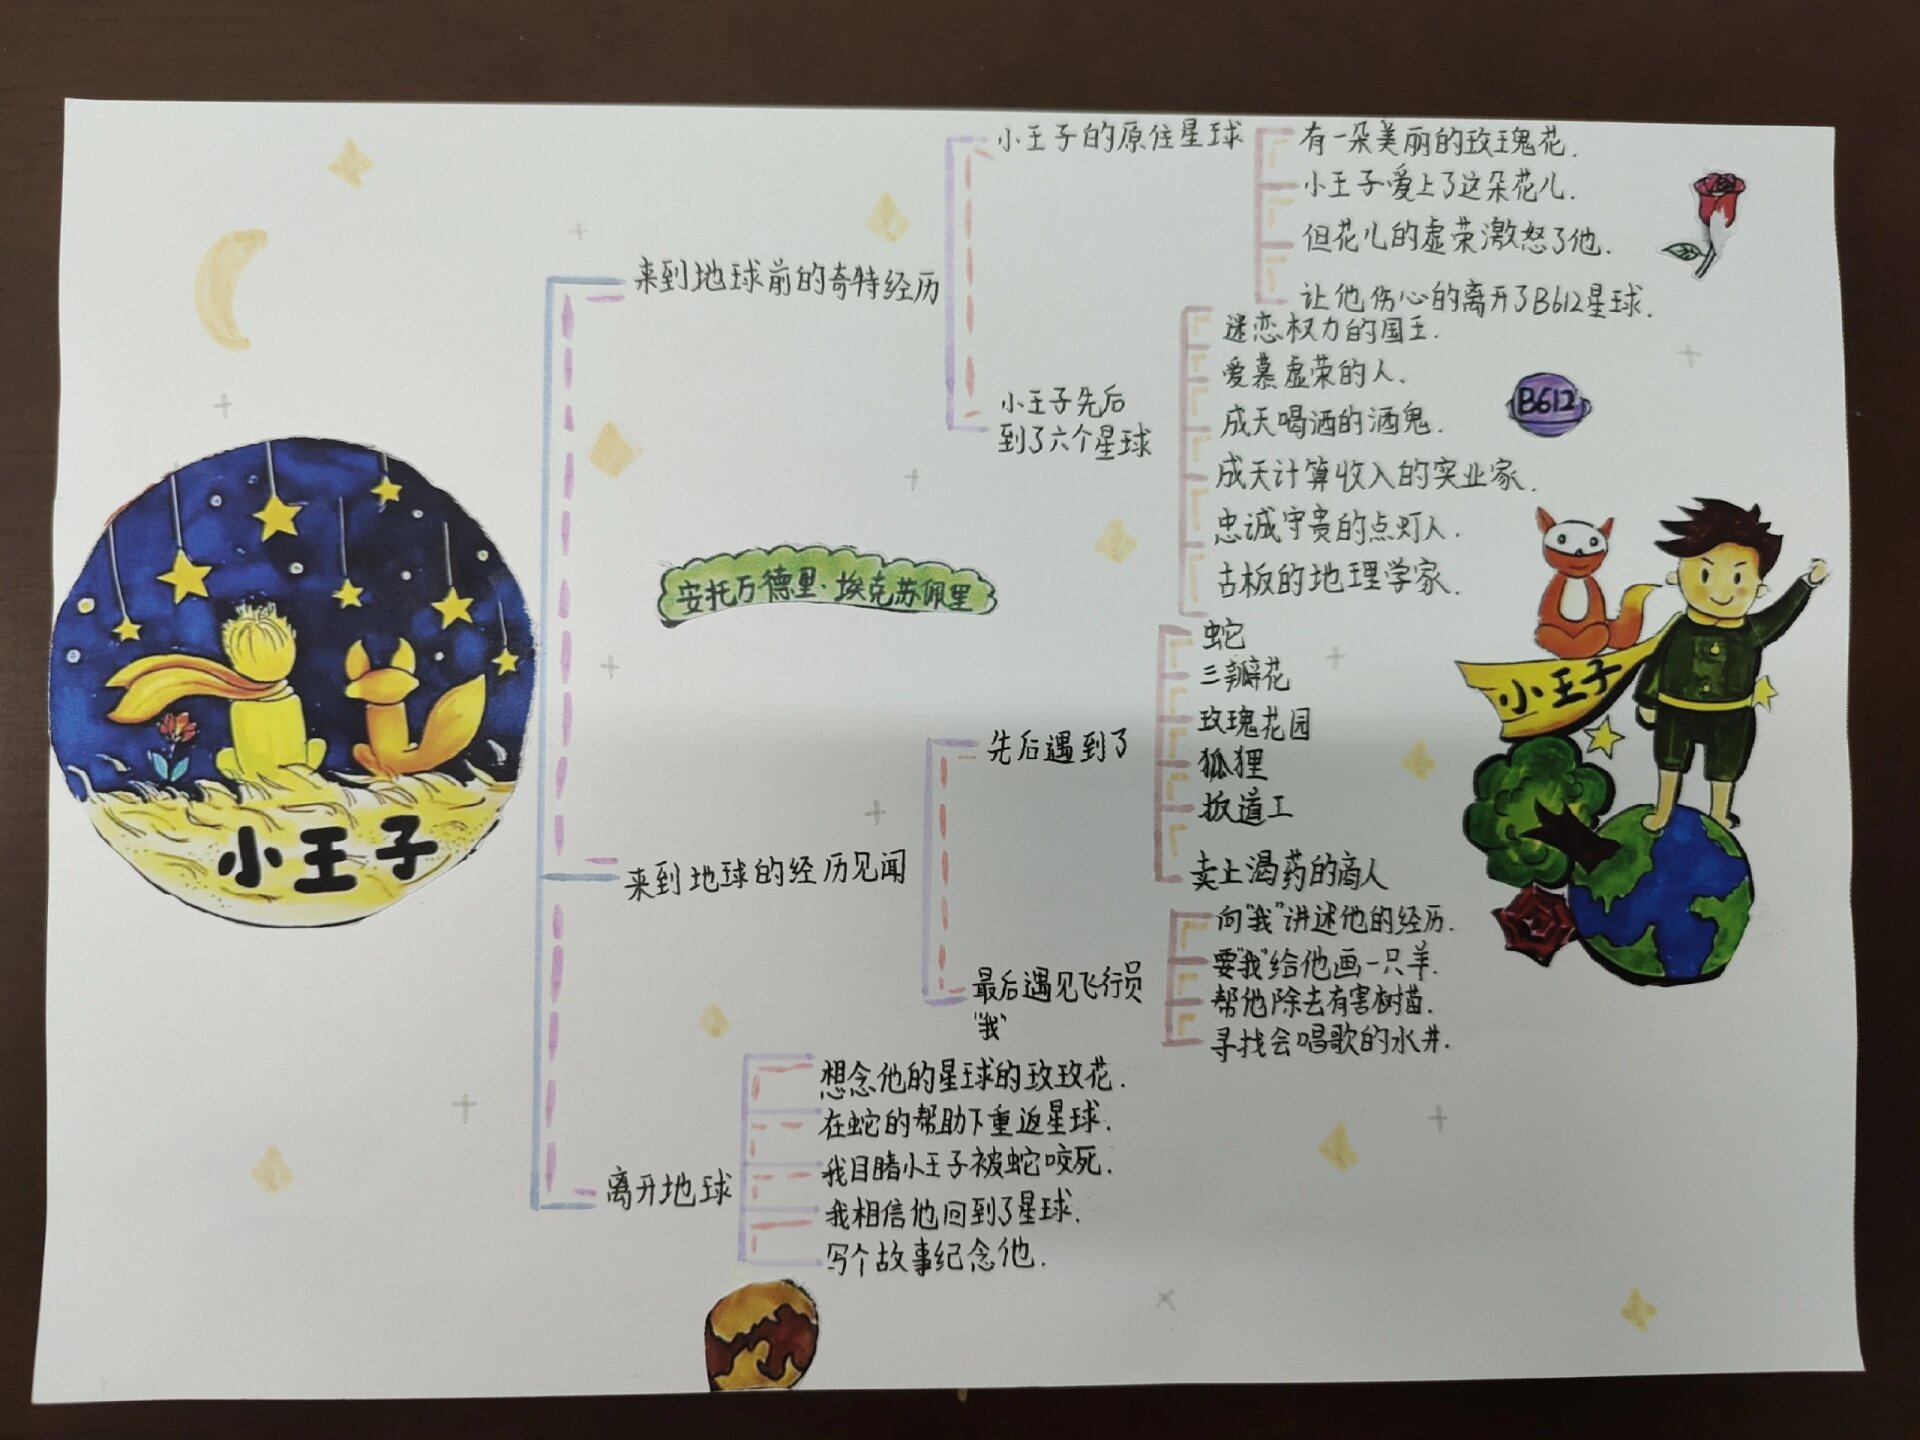 小王子
安托万·德里·埃克苏佩里
来到地球前的奇特经历
小王子的原住星球
有一朵美丽的玫瑰花.
小王子爱上了这朵花儿.
但花儿的虚荣激怒了他.
让他伤心的离开了B612星球.
小王子先后
到了六个星球
迷恋权力的国王.
爱慕虚荣的人.
成天喝酒的酒鬼.
成天计算收入的实业家.
忠诚守责的点灯人.
古板的地理学家.
来到地球的经历见闻
先后遇到了
蛇
三瓣花
玫瑰花园
狐狸
扳道工
卖止渴药的商人
最后遇见飞行员
"我"
向"我"讲述他的经历.
要"我"给他画一只羊.
帮他除去有害树苗.
寻找会唱歌的水井.
离开地球
想念他的星球的玫玫花.
在蛇的帮助下重返星球.
我目睹小王子被蛇咬死.
我相信他回到了星球.
写个故事纪念他.
B612
小王子